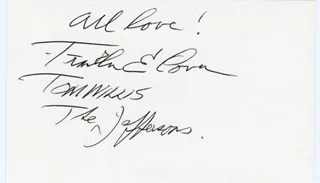 all love!
Franklin Cover
Tom Willis
The Jeffersons.